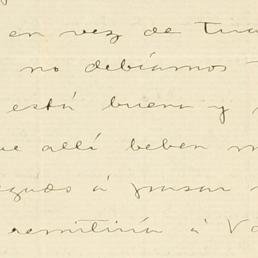 en vez de
no debíamos
está buena y
allí beben
á pasar
remitiría á